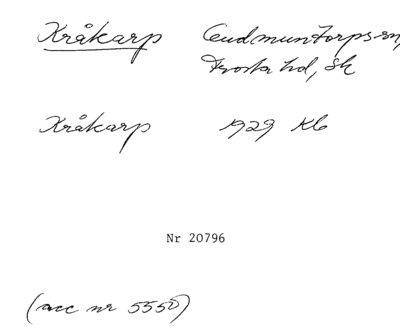 Kråkarp Gudmuntorps sn,
Frosta hd, Sk
Kråkarp 1929 KG
Nr 20796
(acc nr 5550)